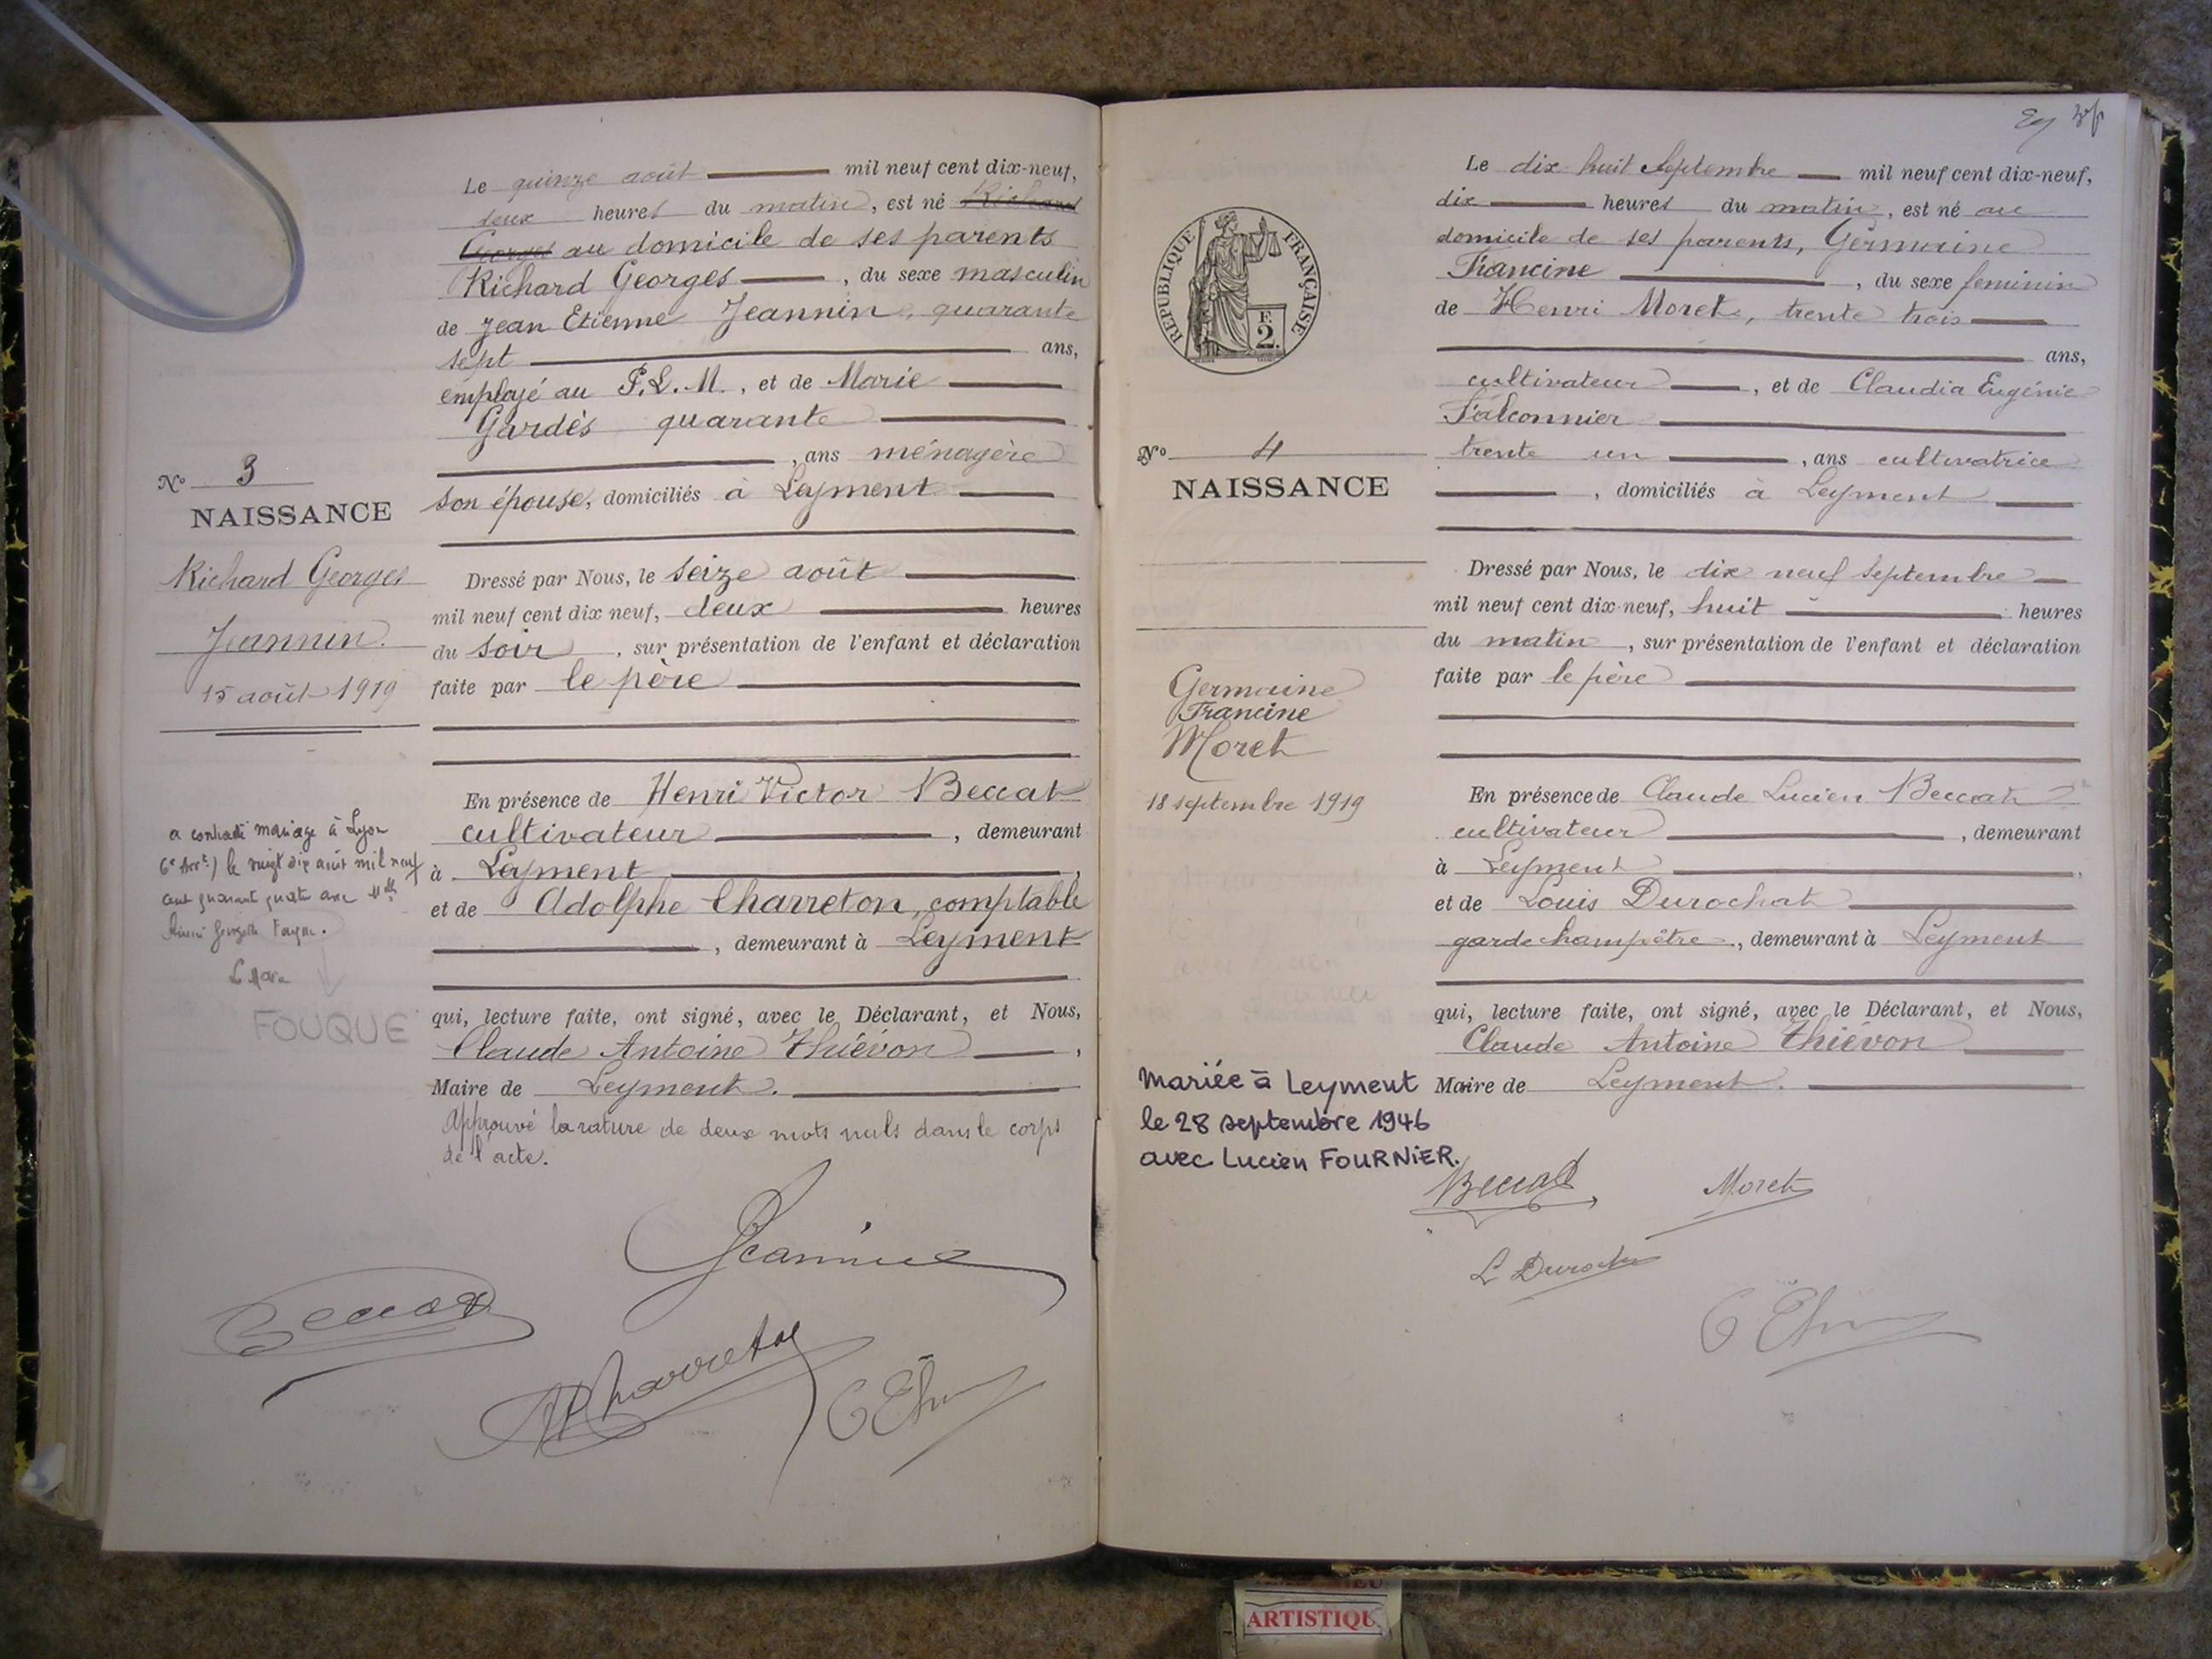 Le quinze août mil neuf cent dix-neuf,
deux heures du matin, est né Richard
Georges au domicile de ses parents
Richard Georges, du sexe masculin
de Jean Etienne Jeannin, quarante
sept ans,
employé au P.L.M., et de Marie
Gardès quarante
, ans ménagère
son épouse, domiciliés à Leyment
No 3
NAISSANCE
Richard Georges
Jeannin.
15 août 1919
Dressé par Nous, le seize août
mil neuf cent dix neuf, deux heures
du soir, sur présentation de l'enfant et déclaration
faite par le père
En présence de Henri Victor Beccat
cultivateur, demeurant
à Leyment,
et de Adolphe Charreton, comptable
, demeurant à Leyment
a contracté mariage à Lyon
6e Arrt) le vingt six août mil neuf
cent quarante quatre avec Mlle
Le Maire
FOUQUE
qui, lecture faite, ont signé, avec le Déclarant, et Nous,
Claude Antoine Thiévon,
Maire de Leyment.
Approuvé la rature de deux mots nuls dans le corps
de l'acte.
Jeannin
Beccat
A Charreton
Le dix huit Septembre mil neuf cent dix-neuf,
dix heures du matin, est né au
domicile de ses parents, Germaine
Francine, du sexe feminin
de Henri Moret, trente trois
ans,
cultivateur, et de Claudia Eugénie
Falconnier
trente un, ans cultivatrice
, domiciliés à Leyment
RÉPUBLIQUE FRANÇAISE
F.
2.
No 4
NAISSANCE
Germaine
Francine
Moret
18 septembre 1919
Dressé par Nous, le dix neuf septembre
mil neuf cent dix-neuf, huit heures
du matin, sur présentation de l'enfant et déclaration
faite par le père
En présence de Claude Lucien Beccat
cultivateur, demeurant
à Leyment,
et de Louis Durochat
garde champêtre, demeurant à Leyment
qui, lecture faite, ont signé, avec le Déclarant, et Nous,
Claude Antoine Thiévon
Maire de Leyment.
Mariée à Leyment
le 28 septembre 1946
avec Lucien FOURNiER.
Beccat
Moret
L Durochat
ARTISTIQU